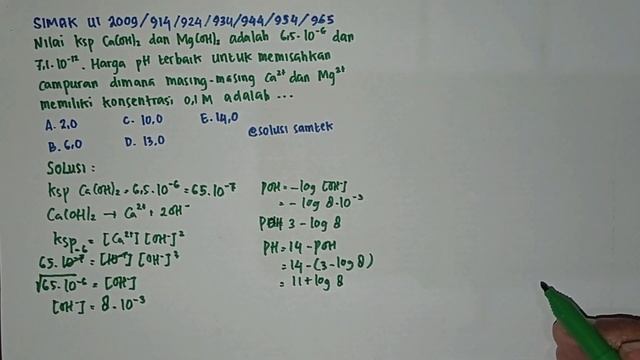 SIMAK UI 2009/914/924/934/944/954/965
Nilai ksp Ca(OH)₂ dan Mg(OH)₂ adalah 6,5.10⁻⁶ dan
7,1.10⁻¹². Harga pH terbaik untuk memisahkan
campuran dimana masing-masing Ca²⁺ dan Mg²⁺
memiliki konsentrasi 0,1 M adalah ...
A. 2,0 C. 10,0 E. 14,0
B. 6,0 D. 13,0
@solusi samtek
Solusi :
ksp Ca(OH)₂ = 6,5.10⁻⁶ = 65.10⁻⁷
Ca(OH)₂ → Ca²⁺ + 2OH⁻
ksp = [Ca²⁺] [OH⁻]²
65.10⁻⁷ = [10⁻¹] [OH⁻]²
√65.10⁻⁶ = [OH⁻]
[OH⁻] = 8.10⁻³
POH = -log [OH⁻]
= -log 8.10⁻³
3 - log 8
PH = 14 - POH
= 14 - (3 - log 8)
= 11 + log 8